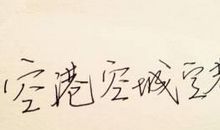 空港空城空